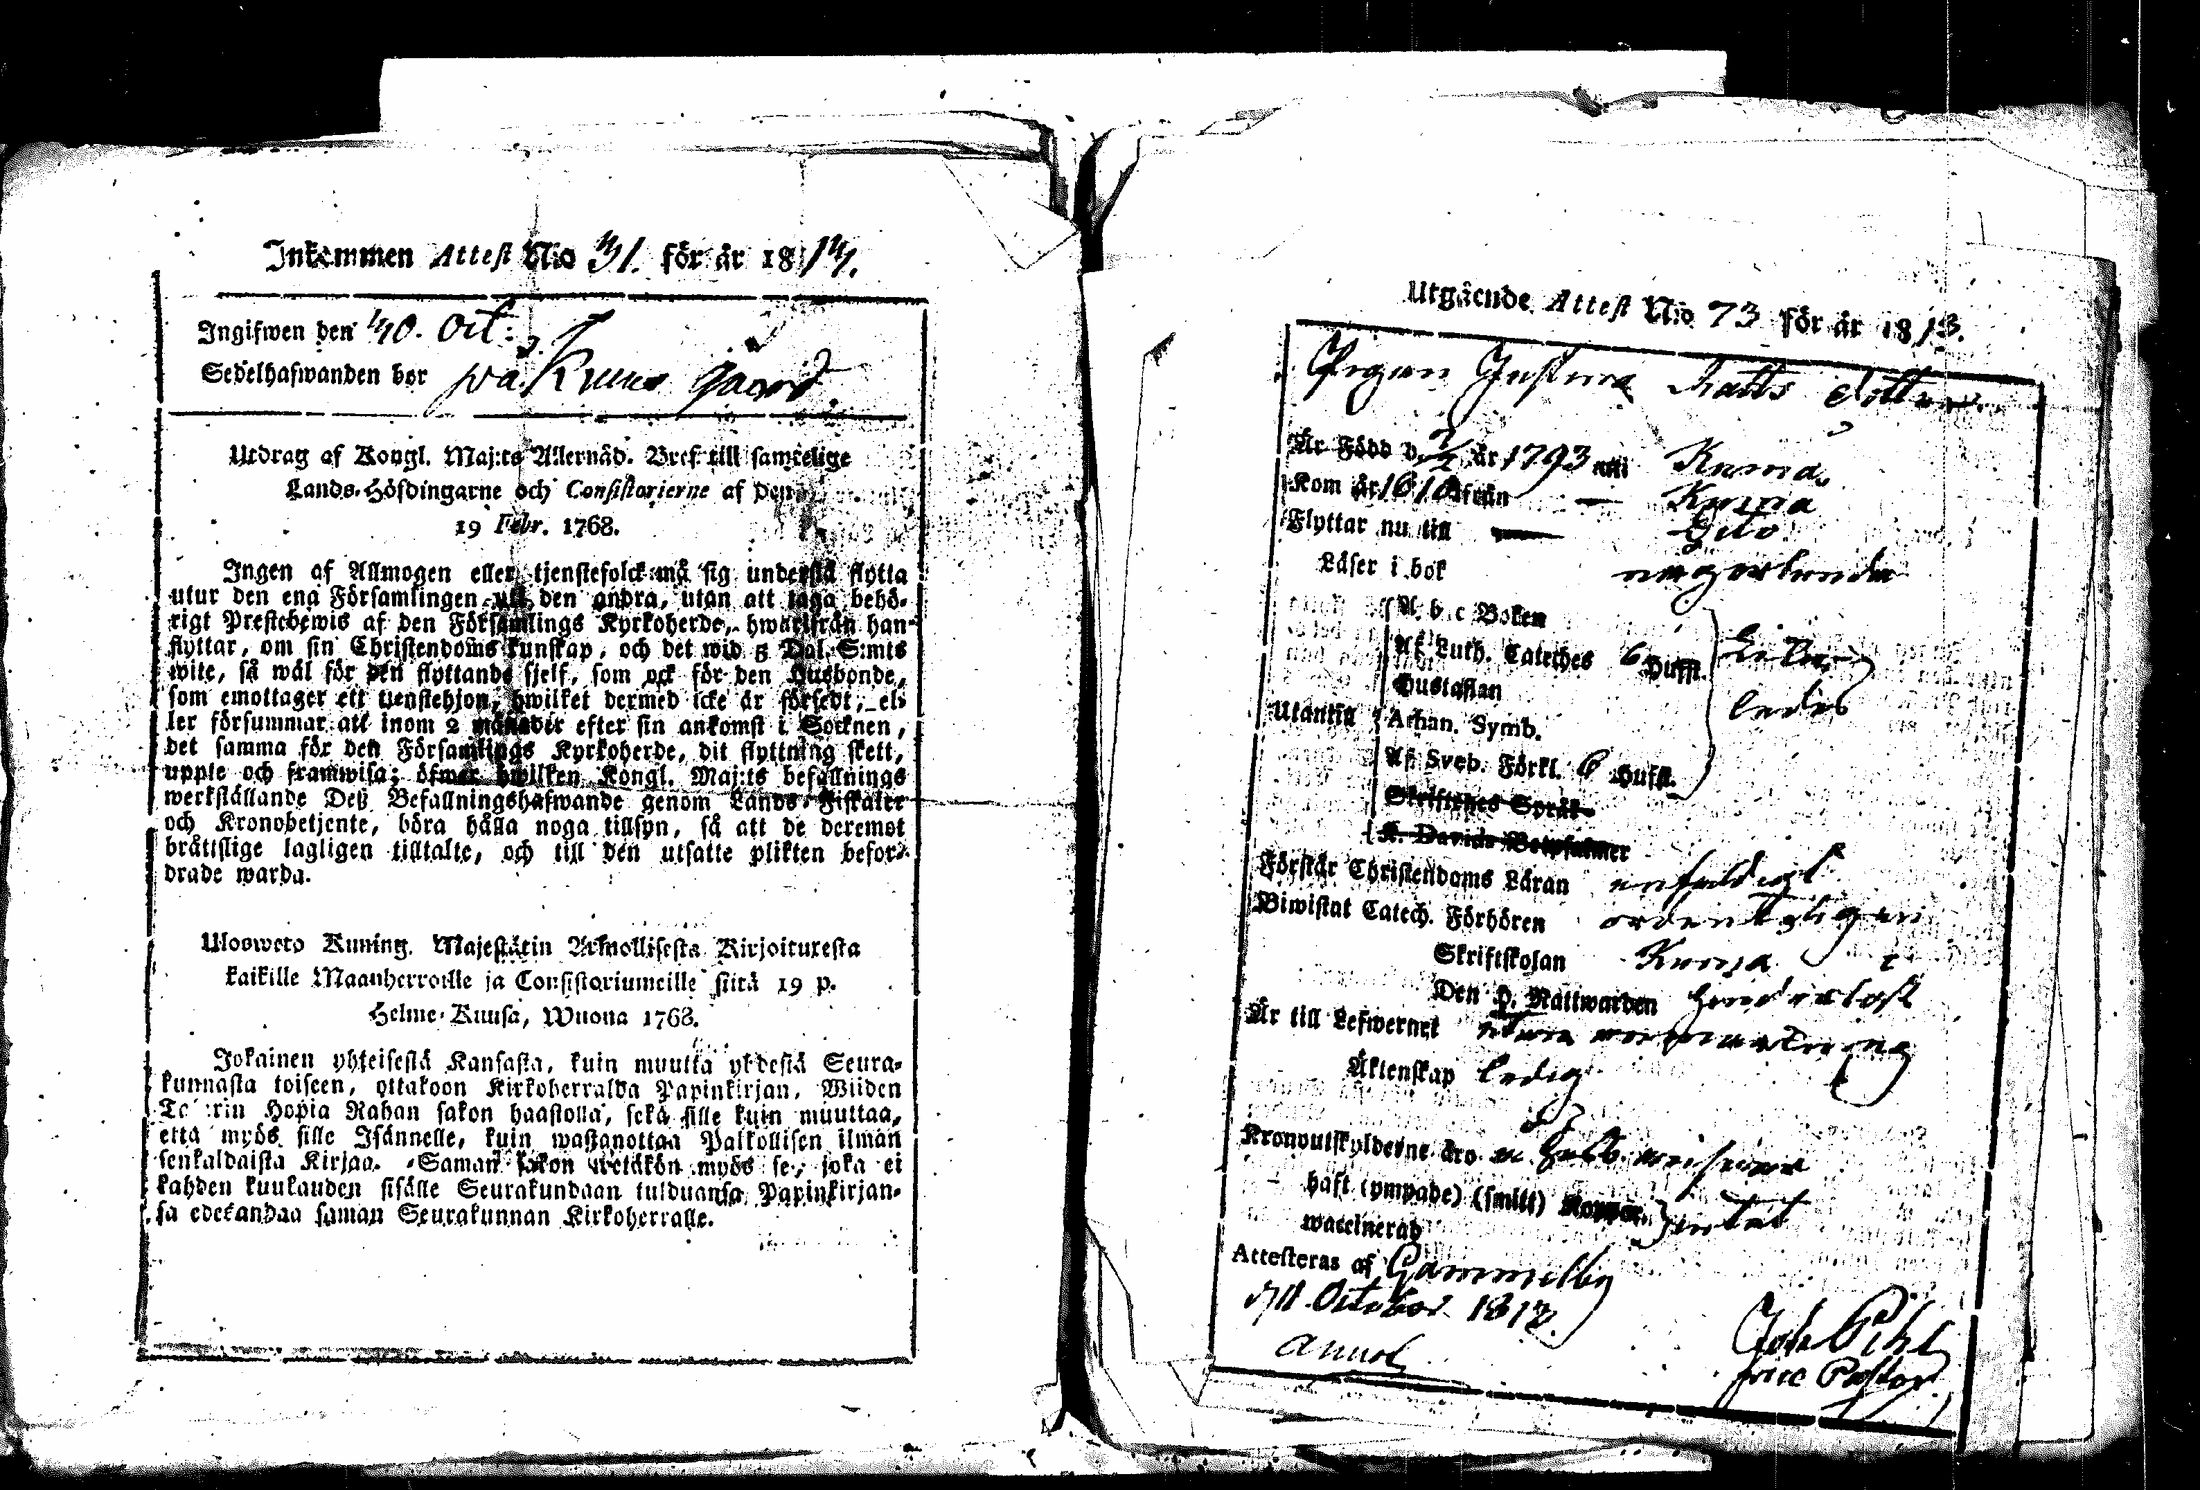 Inkommen Attest N:o 31. för år 1814.
Ingifwen den 30. Oct:
Sedelhafwanden bor på Kumo gård
Utdrag af Kongl. Maj:ts Allernåd. Bref till samtelige
Lands-Höfdingarne och Consistorierne af den
19 Febr. 1768.
Ingen af Allmogen eller tjenstefolck må sig understå flytta
utur den ena Församlingen till den andra, utan att taga behö-
rigt Prestebewis af den Församlings Kyrkoherde, hwarifrån han
flyttar, om sin Christendoms kunskap, och det wid 5 Dal. S:mts
wite, så wäl för den flyttande sjelf, som ock för den Husbonde,
som emottager ett tienstehjon, hwilket dermed icke är försedt, el-
ler försummar att inom 2 månader efter sin ankomst i Socknen,
det samma för den Församlings Kyrkoherde, dit flyttning skett,
uppte och framwisa; öfwer hwilken Kongl. Maj:ts befallnings
werkställande Deß Befallningshafwande genom Lands-Fiskaler
och Kronobetjente, böra hålla noga tillsyn, så att de deremot
bråttslige lagligen tilltalte, och till den utsatte plikten befor-
drade warda.
Ulosweto Kuning. Majestätin Armollisesta Kirjoituresta
kaikille Maanherroille ja Consistoriumeille siitä 19 p.
Helme-Kuusa, Wuona 1768.
Jokainen yhteisestä Kansasta, kuin muutta yhdestä Seura-
kunnasta toiseen, ottakoon Kirkoherralda Papinkirjan, Wiiden
Talarin Hopia Rahan sakon haastolla, sekä sille kuin muuttaa,
että myös sille Isännelle, kuin wastanottaa Palkollisen ilman
senkaldaista Kirjaa. Saman sakon wetäkön myös se, joka ei
kahden kuukauden sisälle Seurakundaan tulduansa Papinkirjan-
sa edesandaa saman Seurakunnan Kirkoherralle.
Utgående Attest N:o 73 för år 1813.
Pigan Justina Matts dotter
Är Född d. år 1793 uti Kumo
Kom år 1810 från — Kumo
Flyttar nu till —
Läser i bok någorlunda
A b c Boken
Af Luth. Cateches 6 Hufst.
Hustaflan
Utantill Athan. Symb.
Af Sveb. Förkl. 6 Hufst.
Skriftenes Språk
K. Davids Botpsalmer
ledes
Förstår Christendoms Läran enfaldigt
Biwistat Catech. Förhören ordenteligen
Skriftskolan
Den H. Nattwarden
Är till Lefwernet utan anmärkning
Äktenskap ledig
Kronoutskylderne äro
haft (ympade) (smitt) Koppor
waccinerad
Attesteras af Gammelby
October 1813.
Joh. Pihl
vice Pastor